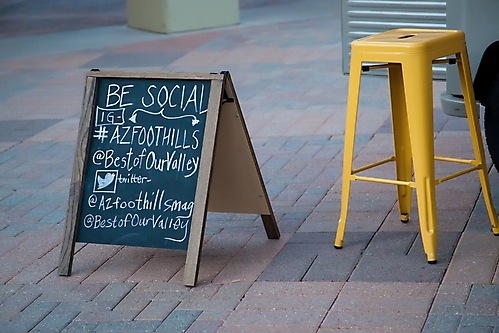 BE SOCIAL
IG-
#AZFOOTHILLS
@BestofOurValley
twitter-
@Azfoothillsmag
@BestofOurValley